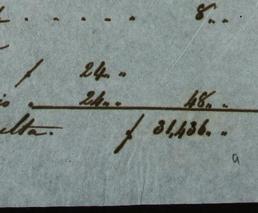 . . . . . . 8 „ „
f 24 „ „
„ 24 „ „ 48 „ „
f 31,436 „ „
a